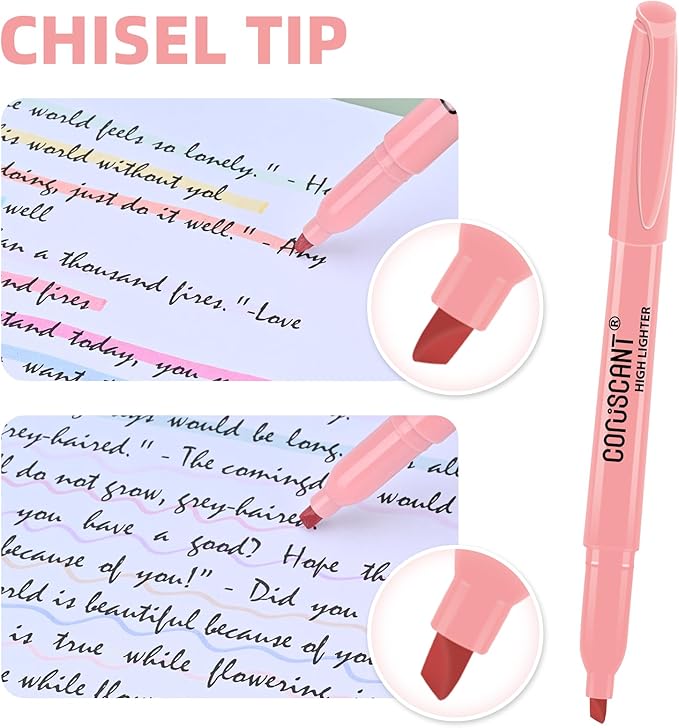 CHISEL TIP
he world feels so lonely." - He
his world without yol
doing, just do it well." - Any
well
an a thousand fires. "-Love
nd fires
stand today, you
want
coruscant®
HIGH LIGHTER
ys would be long. all
grey-haired. " - The comingd would
do not grow, grey-haired.
you have a good? Hope th
because of you!" - Did you
rld is beautiful because of you
is true while flowering
while flow